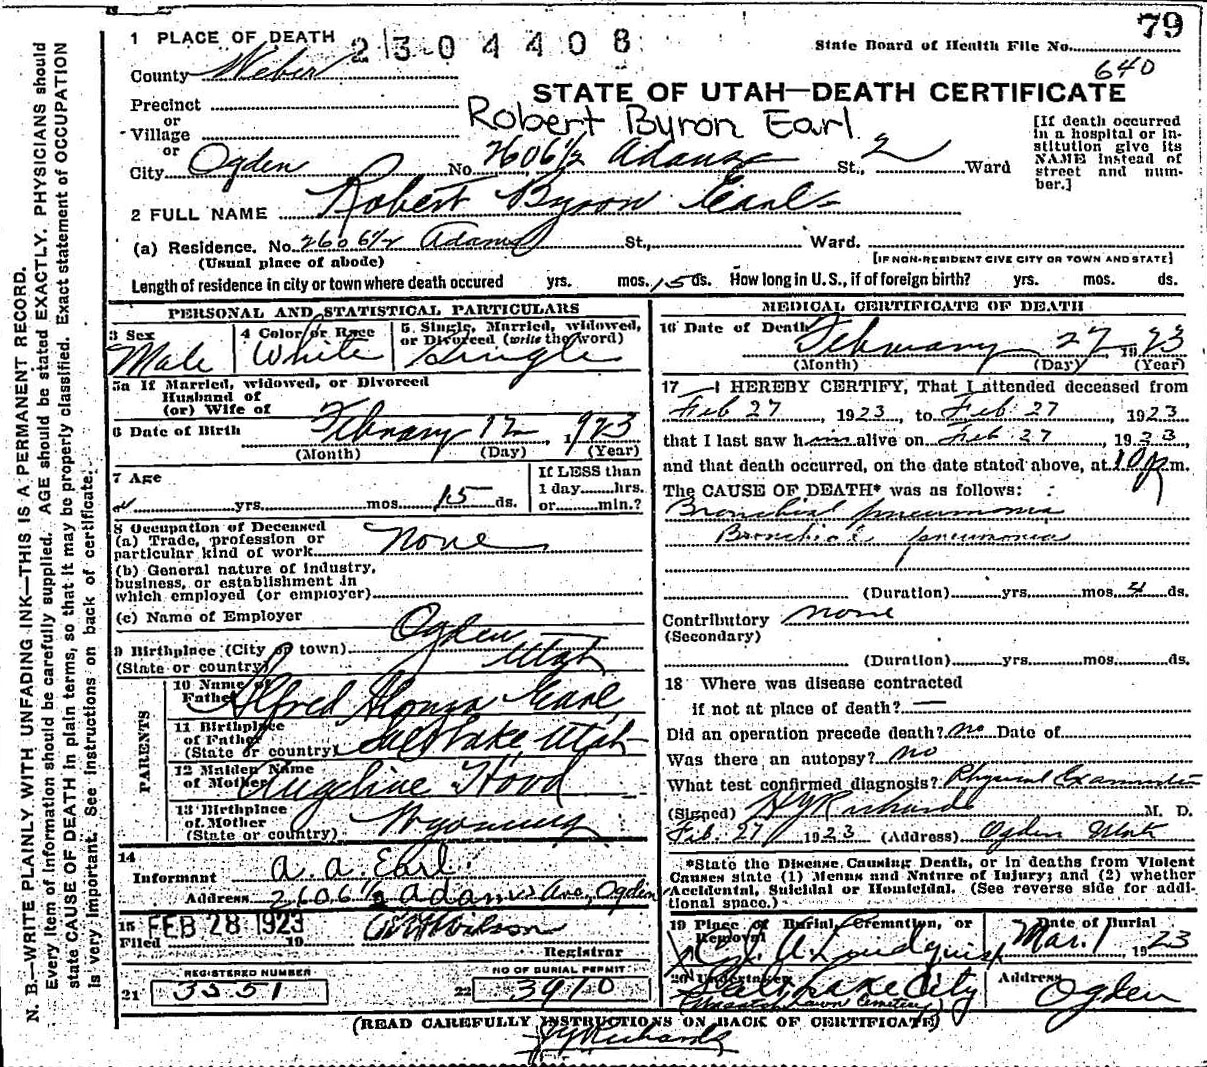 79
1 PLACE OF DEATH
2304408
State Board of Health File No.
640
County Weber
STATE OF UTAH—DEATH CERTIFICATE
Precinct
or
Village
or
Robert Byron Earl
[If death occurred in a hospital or institution give its NAME instead of street and number.]
City Ogden No. 2606 1/2 Adams St., 2 Ward
2 FULL NAME Robert Byron Earl
(a) Residence. No. 2606 1/2 Adams St., Ward.
(Usual place of abode)
[IF NON-RESIDENT GIVE CITY OR TOWN AND STATE]
Length of residence in city or town where death occured yrs. mos. 15 ds. How long in U.S., if of foreign birth? yrs. mos. ds.
PERSONAL AND STATISTICAL PARTICULARS
3 Sex Male
4 Color or Race White
5. Single, Married, widowed, or Divorced (write the word) Single
5a If Married, widowed, or Divorced
Husband of
(or) Wife of
6 Date of Birth February 12, 1923
(Month) (Day) (Year)
7 Age
yrs. mos. 15 ds.
If LESS than
1 day hrs.
or min.?
8 Occupation of Deceased
(a) Trade, profession or
particular kind of work None
(b) General nature of industry,
business, or establishment in
which employed (or employer)
(c) Name of Employer
9 Birthplace (City or town) Ogden
(State or country) Utah
PARENTS
10 Name of Father Alfred Alonzo Earl
11 Birthplace of Father (State or country) Salt Lake, Utah
12 Maiden Name of Mother Angeline Hood
13 Birthplace of Mother (State or country) Wyoming
14
Informant A. A. Earl
Address 2606 1/2 Adams Ave, Ogden
15 FEB 28 1923
Filed 19
Registrar
REGISTERED NUMBER
21 3551
NO OF BURIAL PERMIT
22 3910
MEDICAL CERTIFICATE OF DEATH
16 Date of Death February 27 1923
(Month) (Day) (Year)
17 I HEREBY CERTIFY, That I attended deceased from
Feb 27, 1923, to Feb 27, 1923
that I last saw him alive on Feb 27, 1923,
and that death occurred, on the date stated above, at 10 p.m.
The CAUSE OF DEATH* was as follows:
Bronchial pneumonia
Bronchial pneumonia
(Duration) yrs. mos. 4 ds.
Contributory none
(Secondary)
(Duration) yrs. mos. ds.
18 Where was disease contracted
if not at place of death? —
Did an operation precede death? no Date of
Was there an autopsy? no
What test confirmed diagnosis? Physical Examination
(Signed) H Y Richards M. D.
Feb. 27, 1923 (Address) Ogden Utah
*State the Disease Causing Death, or in deaths from Violent
Causes state (1) Menus and Nature of Injury; and (2) whether
Accidental, Suicidal or Homicidal. (See reverse side for addi-
tional space.)
19 Place of Burial, Cremation, or Removal
Date of Burial
Mar. 1 1923
A. Lundquist
20 Undertaker
Salt Lake City
(Wasatch Lawn Cemetery)
Address
Ogden
(READ CAREFULLY INSTRUCTIONS ON BACK OF CERTIFICATE)
HY Richards
N. B.—WRITE PLAINLY WITH UNFADING INK—THIS IS A PERMANENT RECORD.
Every item of information should be carefully supplied. AGE should be stated EXACTLY. PHYSICIANS should
state CAUSE OF DEATH in plain terms, so that it may be properly classified. Exact statement of OCCUPATION
is very important. See instructions on back of certificate.